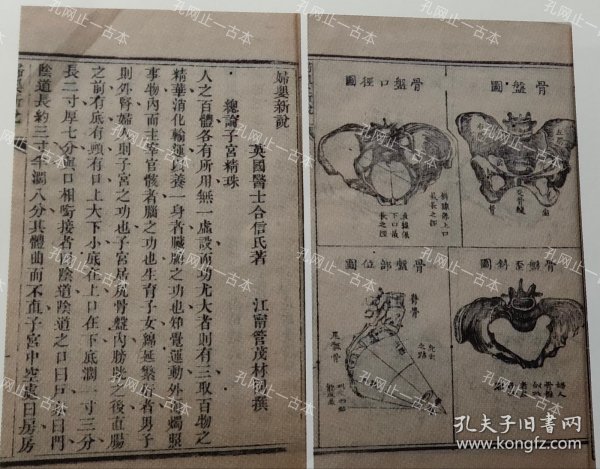 婦嬰新說
英國醫士合信氏著 江甯管茂材同撰
總論子宮精珠
人之百體各有所用無一虛設而功尤大者則有三取百物之
精華消化輸運以養一身者臟腑之功也知覺運動外應燭照
事物內而主宰官骸者腦之功也生育子女綿延繁衍者男子
則外腎婦人則子宮之功也子宮居尻骨盤內膀胱之後直腸
之前有底有頸有口上大下小底在上口在下底濶一寸三分
長二寸厚七分與口相銜接者曰陰道陰道之口曰戶曰門
陰道長約三寸半濶八分其體曲而不直子宮中空處曰房房
骨盤圖
骨盤口徑圖
斜線係上口
最長之徑
直線係
下口最
長之徑
骨盤歪斜圖
骨盤部位圖
脊骨
尾骶骨
孔网止一古本
孔夫子旧书网
www.kongfz.com